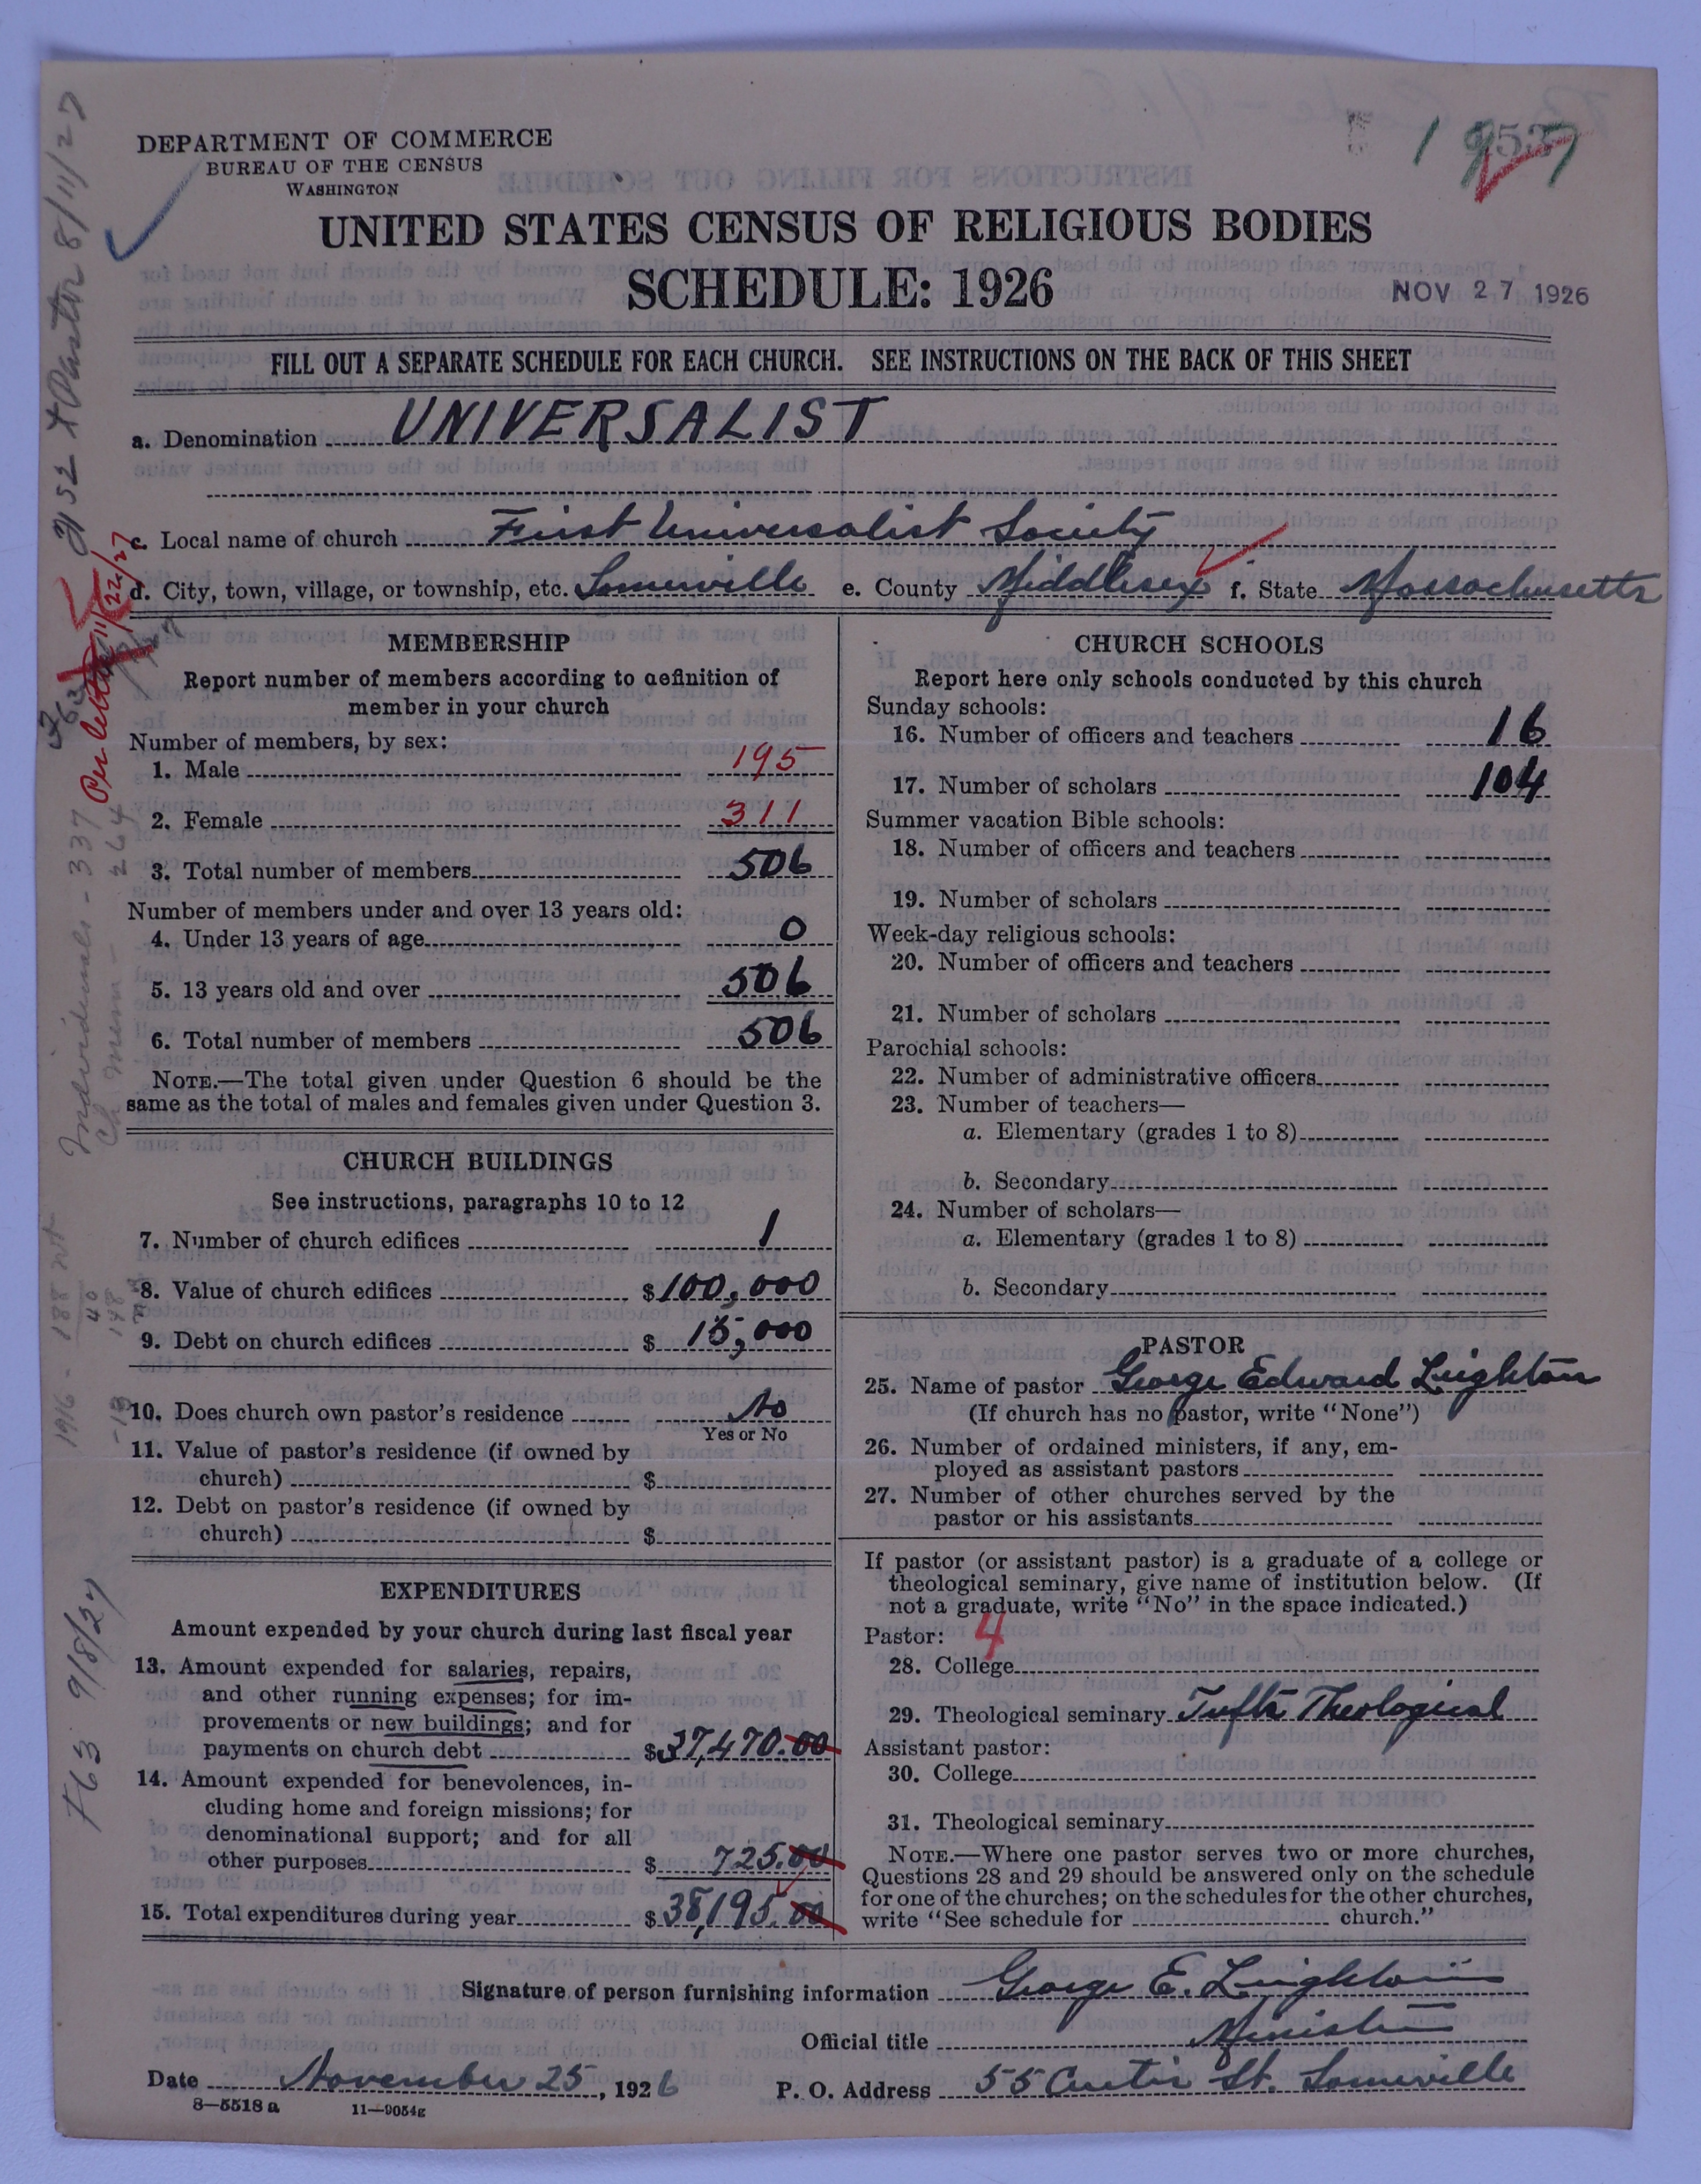 DEPARTMENT OF COMMERCE
BUREAU OF THE CENSUS
WASHINGTON
UNITED STATES CENSUS OF RELIGIOUS BODIES
SCHEDULE: 1926
NOV 27 1926
FILL OUT A SEPARATE SCHEDULE FOR EACH CHURCH. SEE INSTRUCTIONS ON THE BACK OF THIS SHEET
a. Denomination UNIVERSALIST
c. Local name of church First Universalist Society
d. City, town, village, or township, etc. Somerville e. County Middlesex f. State Massachusetts
MEMBERSHIP
Report number of members according to definition of
member in your church
Number of members, by sex:
1. Male 195
2. Female 311
3. Total number of members 506
Number of members under and over 13 years old:
4. Under 13 years of age 0
5. 13 years old and over 506
6. Total number of members 506
NOTE.—The total given under Question 6 should be the
same as the total of males and females given under Question 3.
CHURCH BUILDINGS
See instructions, paragraphs 10 to 12
7. Number of church edifices 1
8. Value of church edifices $100,000
9. Debt on church edifices $ 15,000
10. Does church own pastor's residence No
Yes or No
11. Value of pastor's residence (if owned by
church) $
12. Debt on pastor's residence (if owned by
church) $
EXPENDITURES
Amount expended by your church during last fiscal year
13. Amount expended for salaries, repairs,
and other running expenses; for im-
provements or new buildings; and for
payments on church debt $37,470.00
14. Amount expended for benevolences, in-
cluding home and foreign missions; for
denominational support; and for all
other purposes $ 725.00
15. Total expenditures during year $38,195.00
CHURCH SCHOOLS
Report here only schools conducted by this church
Sunday schools:
16. Number of officers and teachers 16
17. Number of scholars 104
Summer vacation Bible schools:
18. Number of officers and teachers
19. Number of scholars
Week-day religious schools:
20. Number of officers and teachers
21. Number of scholars
Parochial schools:
22. Number of administrative officers
23. Number of teachers—
a. Elementary (grades 1 to 8)
b. Secondary
24. Number of scholars—
a. Elementary (grades 1 to 8)
b. Secondary
PASTOR
25. Name of pastor George Edward Leighton
(If church has no pastor, write "None")
26. Number of ordained ministers, if any, em-
ployed as assistant pastors
27. Number of other churches served by the
pastor or his assistants
If pastor (or assistant pastor) is a graduate of a college or
theological seminary, give name of institution below. (If
not a graduate, write "No" in the space indicated.)
Pastor: 4
28. College
29. Theological seminary Tufts Theological
Assistant pastor:
30. College
31. Theological seminary
NOTE.—Where one pastor serves two or more churches,
Questions 28 and 29 should be answered only on the schedule
for one of the churches; on the schedules for the other churches,
write "See schedule for church."
Signature of person furnishing information George E. Leighton
Official title Minister
Date November 25, 1926 P. O. Address 55 Curtis St. Somerville
8—5518 a 11—9054g
Pastor 8/11/27
Per letter 11/22/27
Individuals - 337
Ch mem - 264
763 9/8/27